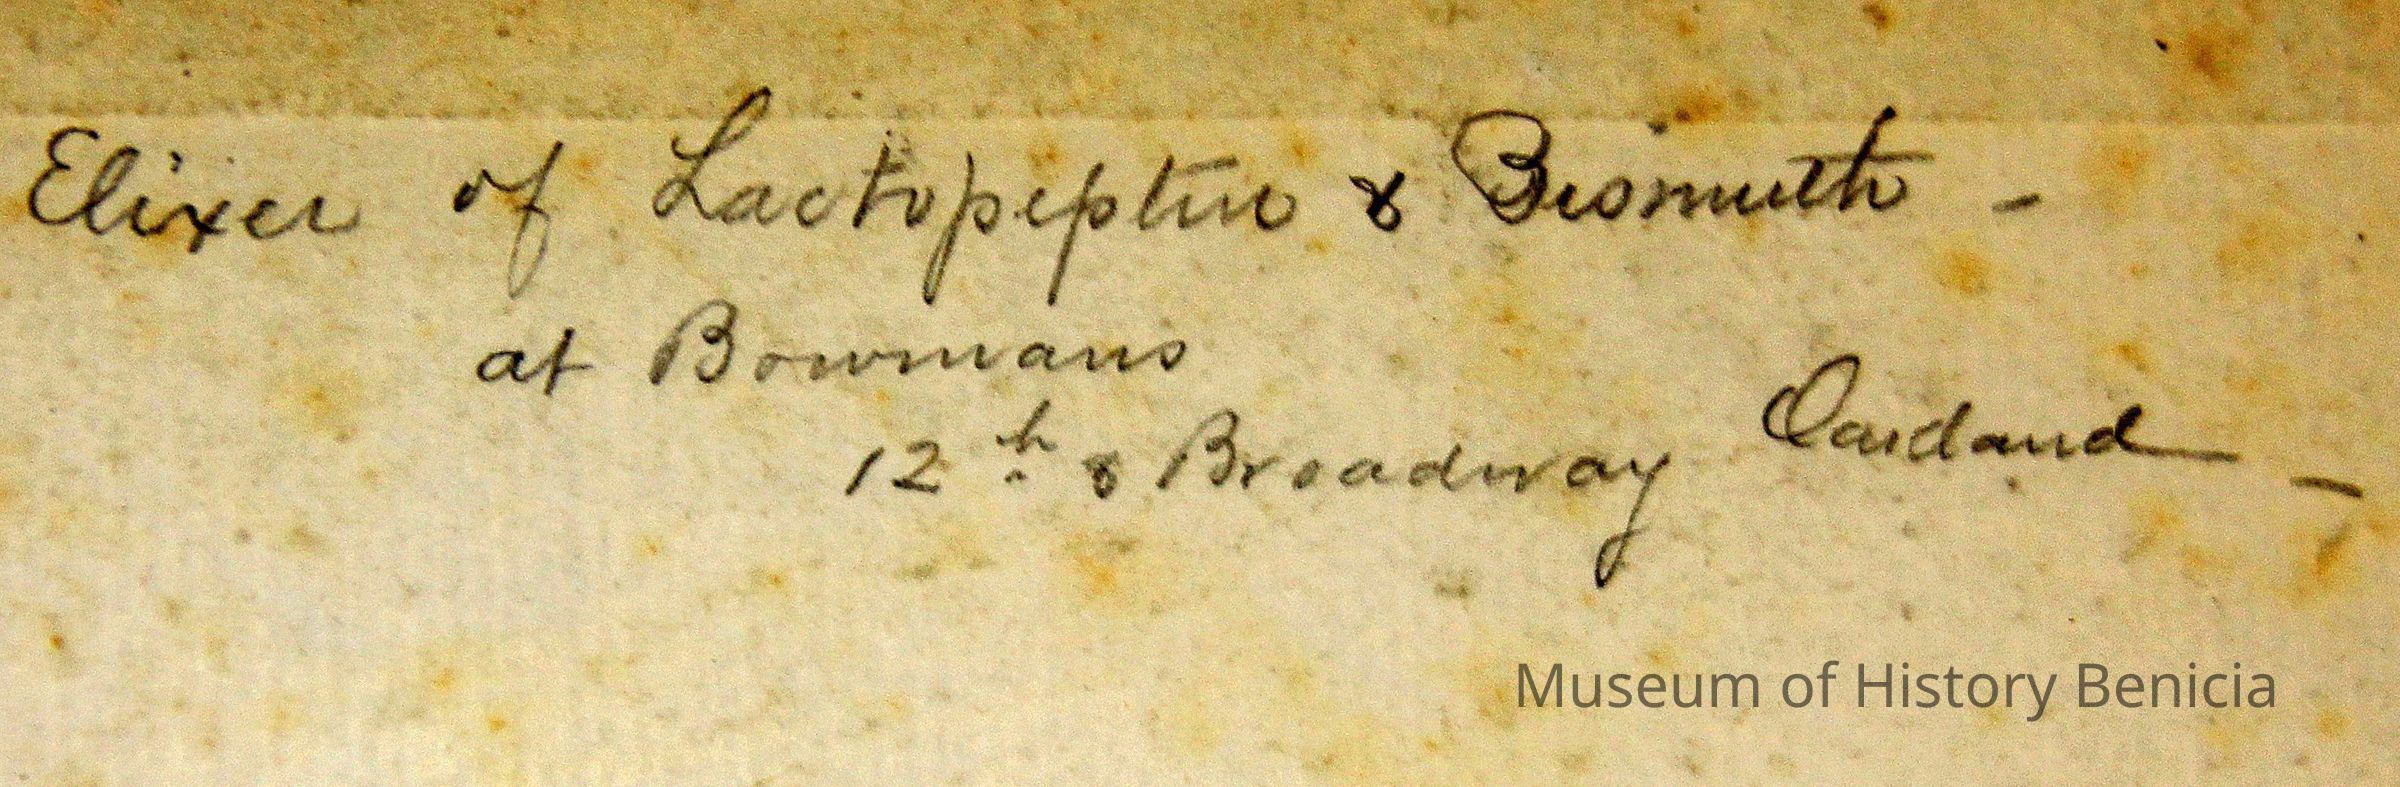 Elixer of Lactopeptine & Bismuth -
at Bowmans
12th & Broadway Oakland -
Museum of History Benicia